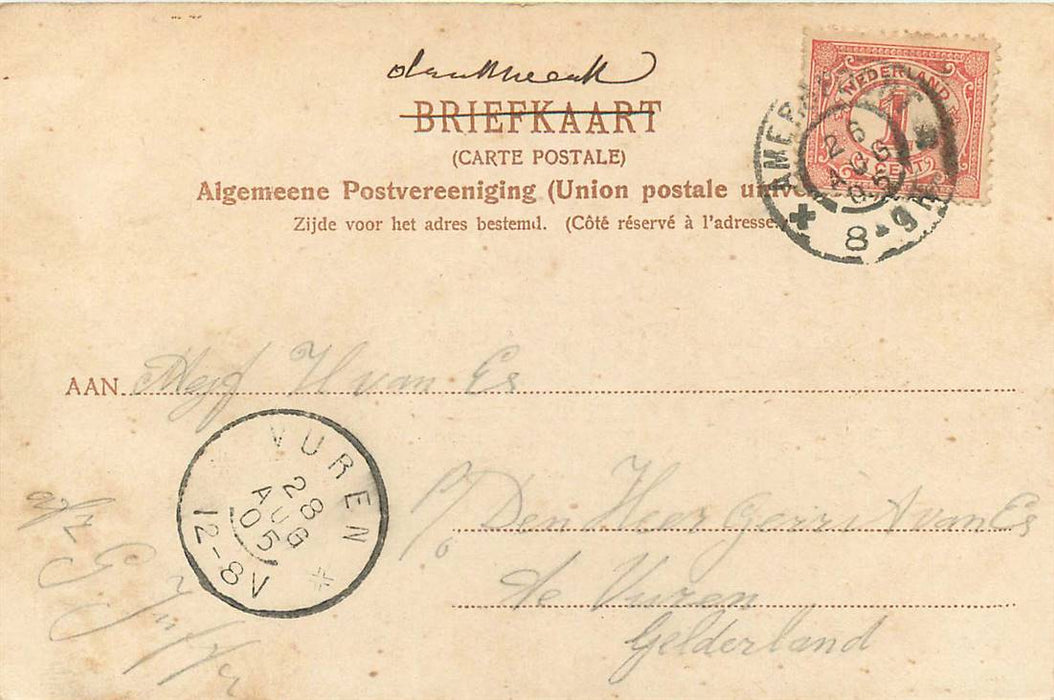 BRIEFKAART
(CARTE POSTALE)
Algemeene Postvereeniging (Union postale unive
Zijde voor het adres bestemd. (Côté réservé à l'adresse.
NEDERLAND
1
CENT
AMERSFOORT
26
AUG
05
8-9
AAN Mejf H van Es
p/ Den Heer Gerrit A van Es
te Vuren
Gelderland
VUREN
28
AUG
05
12-8N
afz